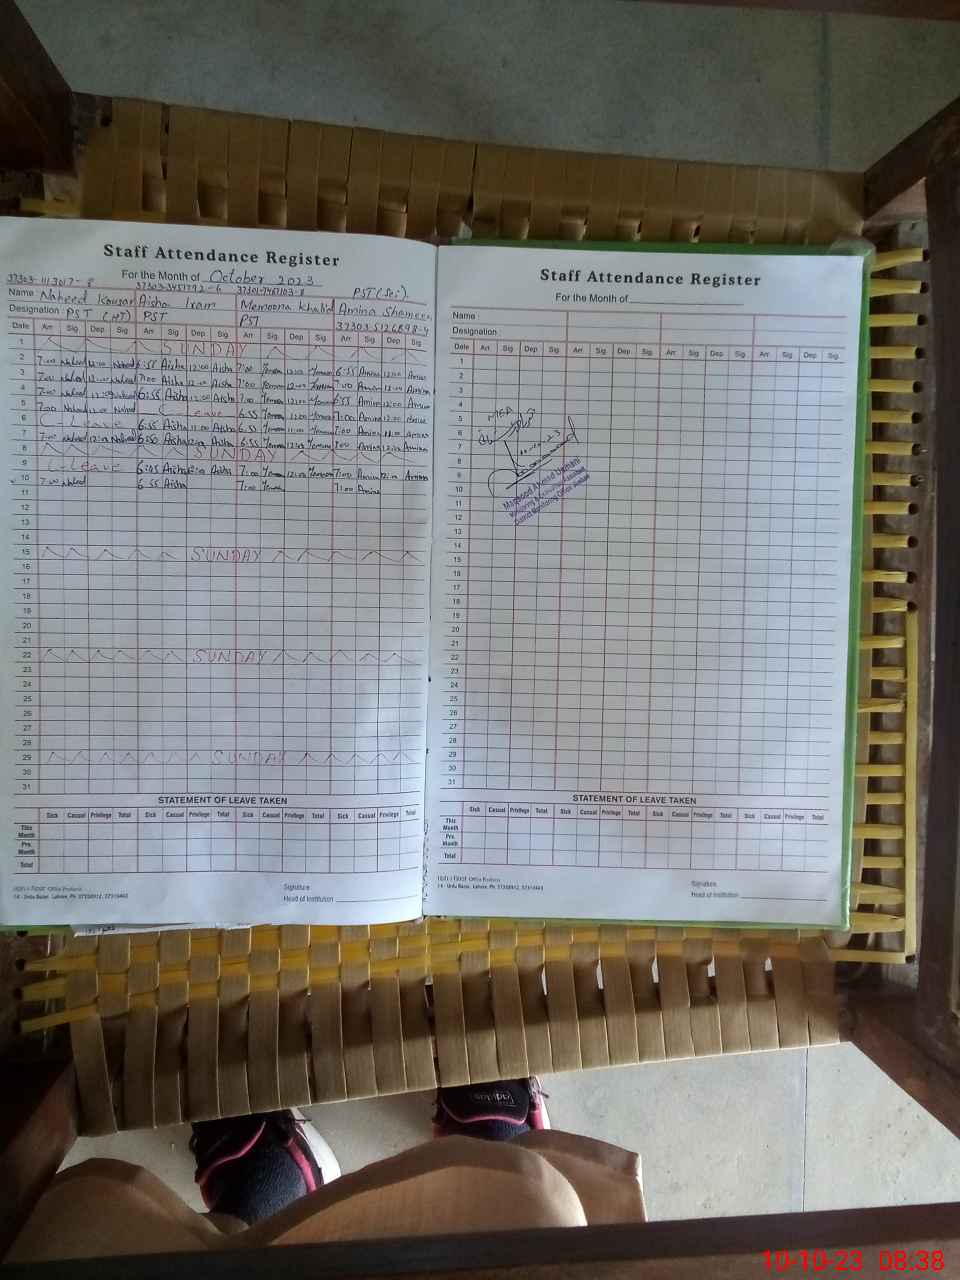 Staff Attendance Register
For the Month of October 2023
37303-1113017-8 37303-3451792-6 37301-7467103-8 PST (Sci).
Name Naheed Kousar Aisha Iram Memoona Khalid Amina Shameen
Designation PST (HT) PST PST 37303-5126898-4
Date Arr Sig Dep Sig Arr Sig Dep Sig Arr Sig Dep Sig Arr Sig Dep Sig
1 SUNDAY
2 7:00 Naheed 12:00 Naheed 6:55 Aisha 12:00 Aisha 7:00 12:00 6:55 Amina 12:00 Amina
3 7:00 Naheed 12:00 Naheed 7:00 Aisha 12:00 Aisha 7:00 12:00 7:00 Amina 12:00 Amina
4 7:00 Naheed 12:00 Naheed 6:55 Aisha 12:00 Aisha 7:00 12:00 6:55 Amina 12:00 Amina
5 7:00 Naheed 12:00 Naheed C-Leave 6:55 12:00 7:00 Amina 12:00 Amina
6 C-Leave 6:55 Aisha 11:00 Aisha 6:55 11:00 7:00 Amina 11:00 Amina
7 7:00 Naheed 12:00 Naheed 6:50 Aisha 12:00 Aisha 6:55 12:00 7:00 Amina 12:00 Amina
8 SUNDAY
9 C-Leave 6:05 Aisha 12:00 Aisha 7:00 12:00 7:00 Amina 12:00 Amina
10 7:00 Naheed 6:55 Aisha 7:00 7:00 Amina
11
12
13
14
15 SUNDAY
16
17
18
19
20
21
22 SUNDAY
23
24
25
26
27
28
29 SUNDAY
30
31
STATEMENT OF LEAVE TAKEN
Sick Casual Privilege Total Sick Casual Privilege Total Sick Casual Privilege Total Sick Casual Privilege Total
This Month
Pre. Month
Total
14 - Urdu Bazar, Lahore.
Signature
Head of Institution
Staff Attendance Register
For the Month of
Name
Designation
Date Arr Sig Dep Sig Arr Sig Dep Sig Arr Sig Dep Sig Arr Sig Dep Sig
1
2
3
4
5
6
7
8
9
10
11
12
13
14
15
16
17
18
19
20
21
22
23
24
25
26
27
28
29
30
31
MEA
10-10-23
Maqsood Ahmed
Monitoring & Evaluation Assistant
District Monitoring Office
STATEMENT OF LEAVE TAKEN
Sick Casual Privilege Total Sick Casual Privilege Total Sick Casual Privilege Total Sick Casual Privilege Total
This Month
Pre. Month
Total
14 - Urdu Bazar, Lahore.
Signature
Head of Institution
adidas
10-10-23 08:38